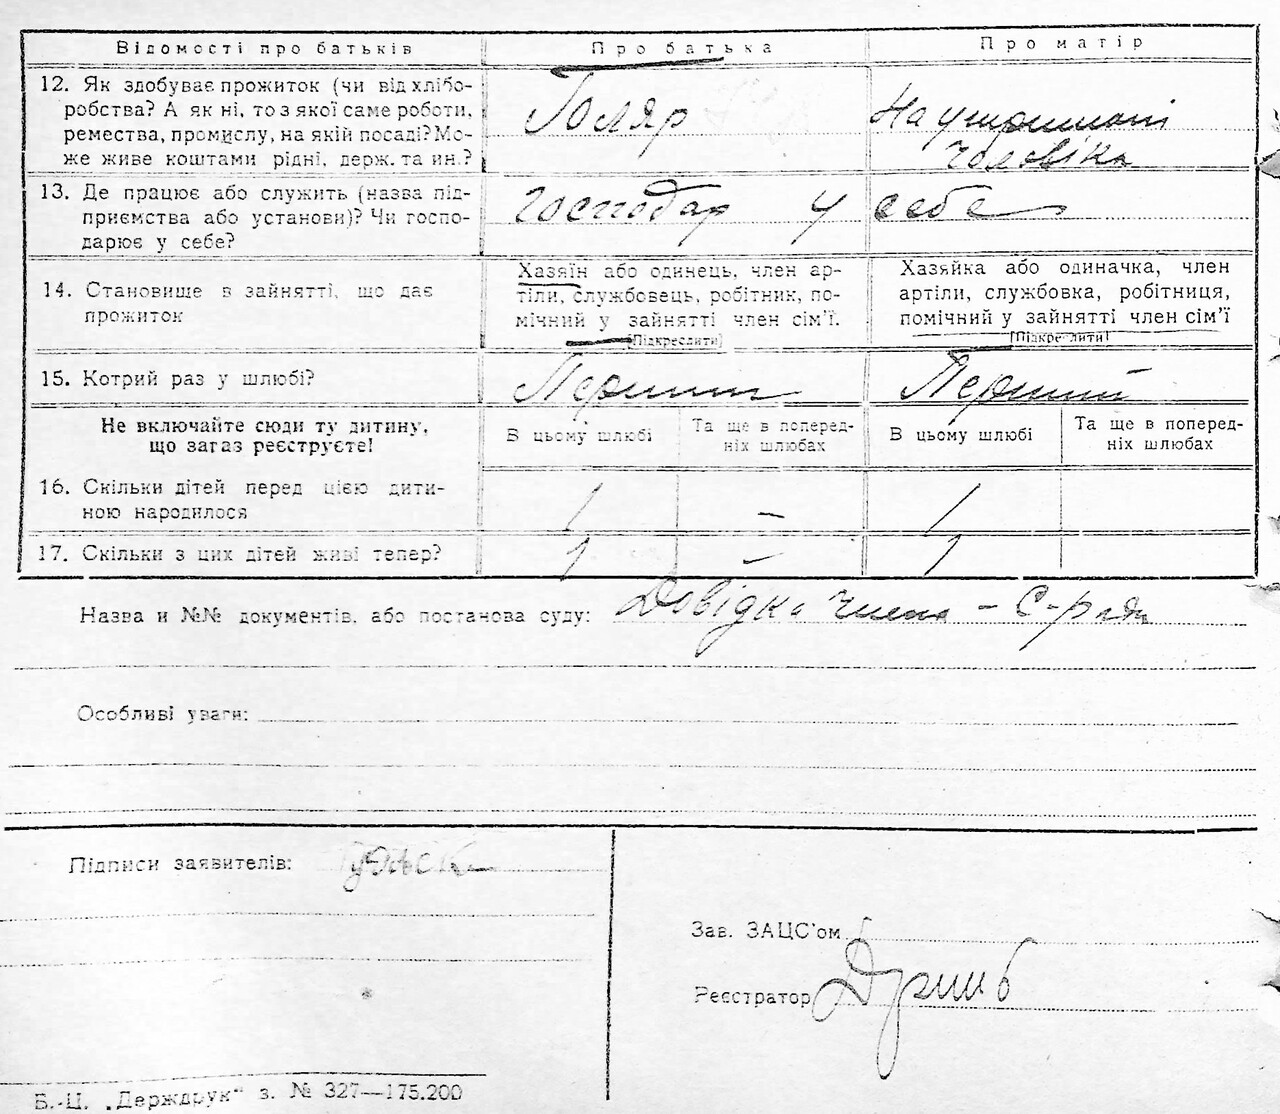 Відомості про батьків Про батька Про матір
12. Як здобуває прожиток (чи від хлібо-
робства? А як ні, то з якої саме роботи,
ремества, промислу, на якій посаді? Мо-
же живе коштами рідні, держ. та ин.?
Голяр
На утриманні
чоловіка
13. Де працює або служить (назва під-
приємства або установи)? Чи госпо-
дарює у себе?
господар у себе
14. Становище в зайнятті, що дає
прожиток
Хазяїн або одинець, член ар-
тіли, службовець, робітник, по-
мічний у зайнятті член сім'ї.
[Підкреслити]
Хазяйка або одиначка, член
артіли, службовка, робітниця,
помічний у зайнятті член сім'ї
[Підкреслити]
15. Котрий раз у шлюбі? Перший Перший
Не включайте сюди ту дитину,
що загаз реєструєте!
В цьому шлюбі
Та ще в поперед-
ніх шлюбах
В цьому шлюбі
Та ще в поперед-
ніх шлюбах
16. Скільки дітей перед цією дити-
ною народилося
1 – 1
17. Скільки з цих дітей живі тепер? 1 – 1
Назва и №№ документів, або постанова суду: Довідка члена – С-ради
Особливі уваги:
Підписи заявителів:
Зав. ЗАЦС'ом
Реєстратор
Б.-Ц. „Держдрук" з. № 327—175.200